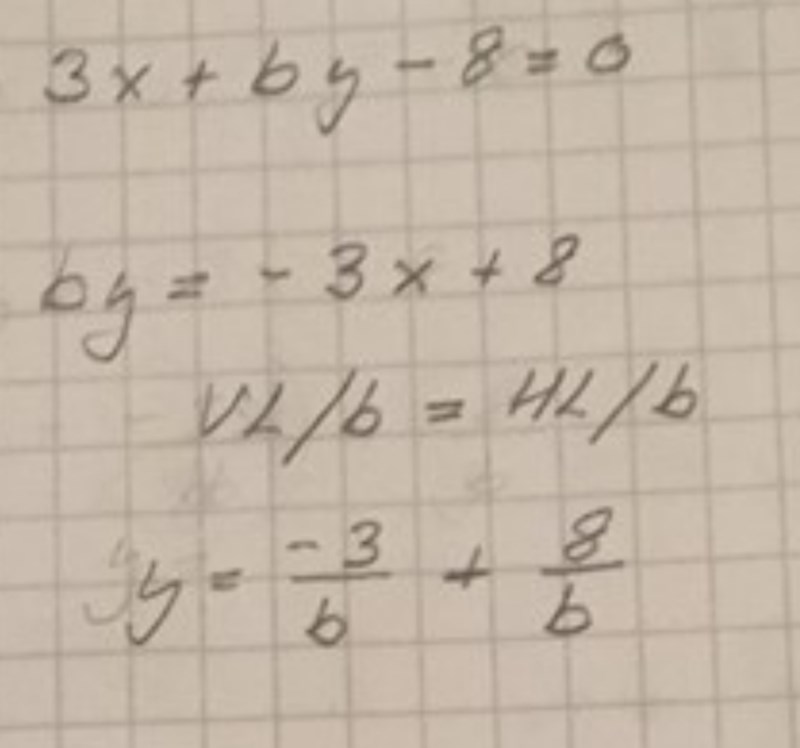 3x + by - 8 = 0
by = - 3x + 8
VL/b = HL/b
y = -3/b + 8/b